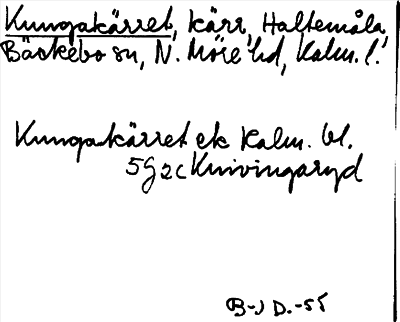 Kungakärret, kärr, Haltemåla,
Bäckebo sn, N. Möre hd, Kalm. l.
Kungakärret ek Kalm. bl.
5G2c Knivingaryd
B-J D.-55